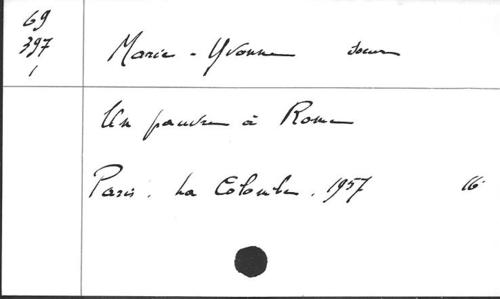 69
397
1
Marie-Yvonne soeur
Un pauvre à Rome
Paris. La Colombe. 1957 16